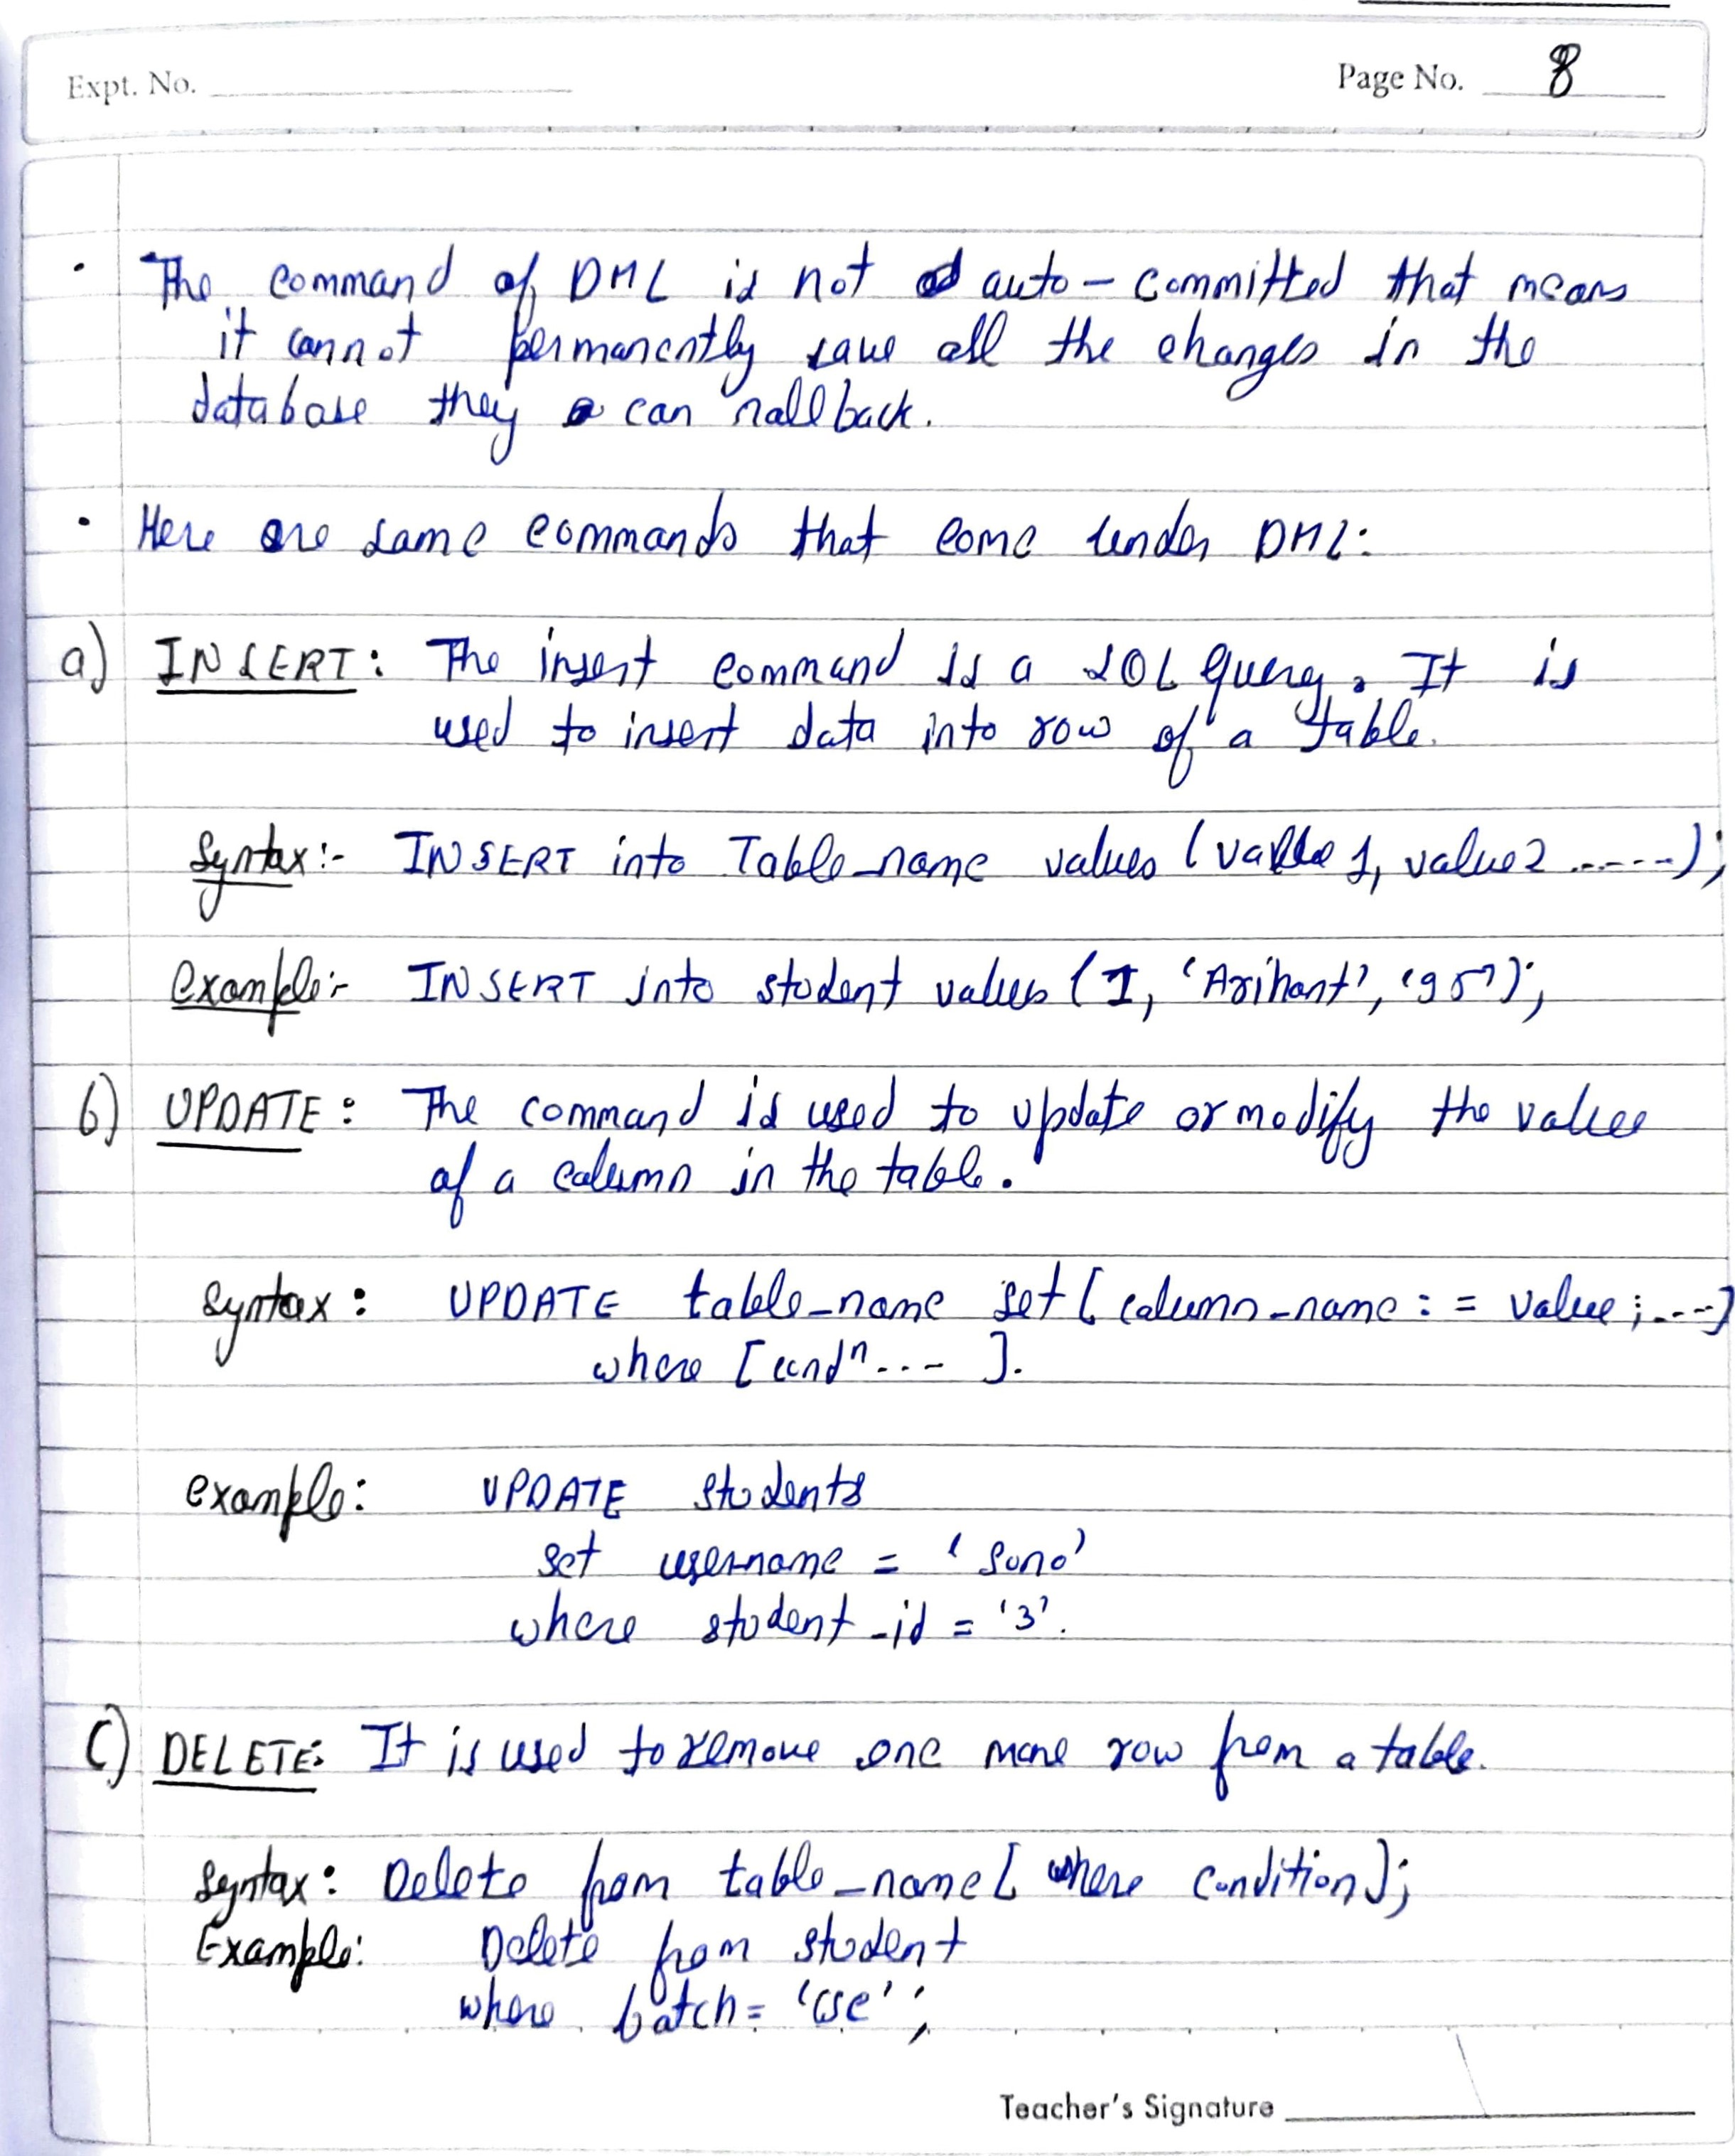 Expt. No.
Page No. 8
• The command of DML is not auto-committed that means
it cannot permanently save all the changes in the
database they can rollback.
• Here are some commands that come under DML:
a) INSERT: The insert command is a SQL query. It is
used to insert data into row of a table.
Syntax:- INSERT into Table_name values (value 1, value 2 .....);
Example:- INSERT into student values (1, 'Arihant', '95');
b) UPDATE: The command is used to update or modify the value
of a column in the table.
Syntax: UPDATE table_name set [column_name: = value;....]
where [condn.... ].
example: UPDATE students
set username = 'Sono'
where student_id = '3'.
C) DELETE: It is used to remove one more row from a table.
Syntax: Delete from table_name [where condition];
Example: Delete from student
where batch = 'cse';
Teacher's Signature